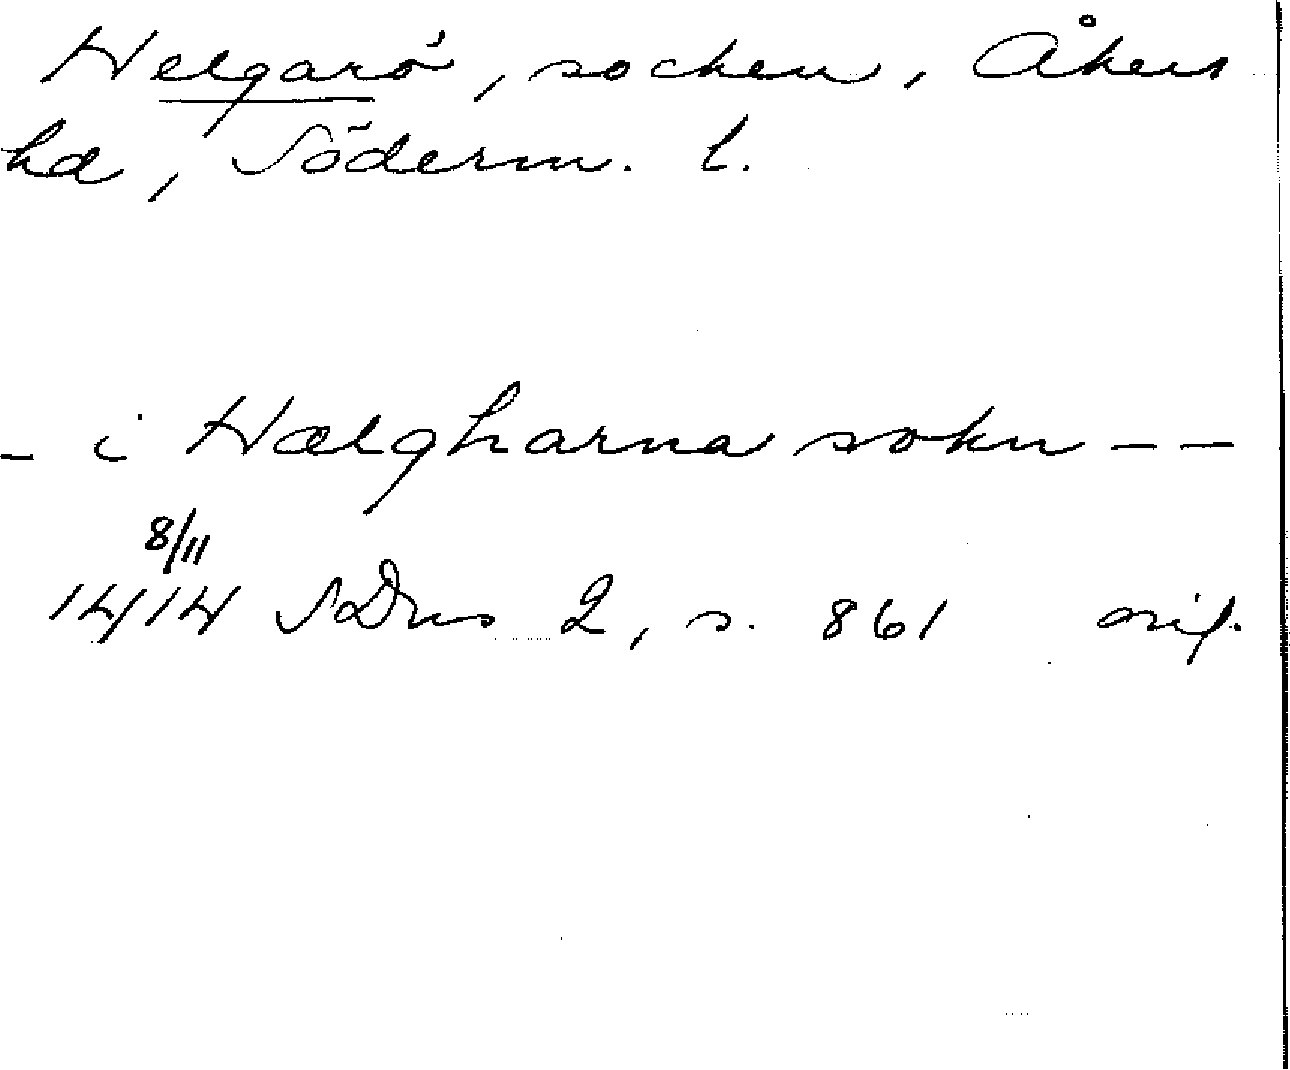 Helgarö, socken, Åkers
hd, Söderm. l.
- i Hælgharna sokn - -
8/11
1414 SDns 2, s. 861 orig.